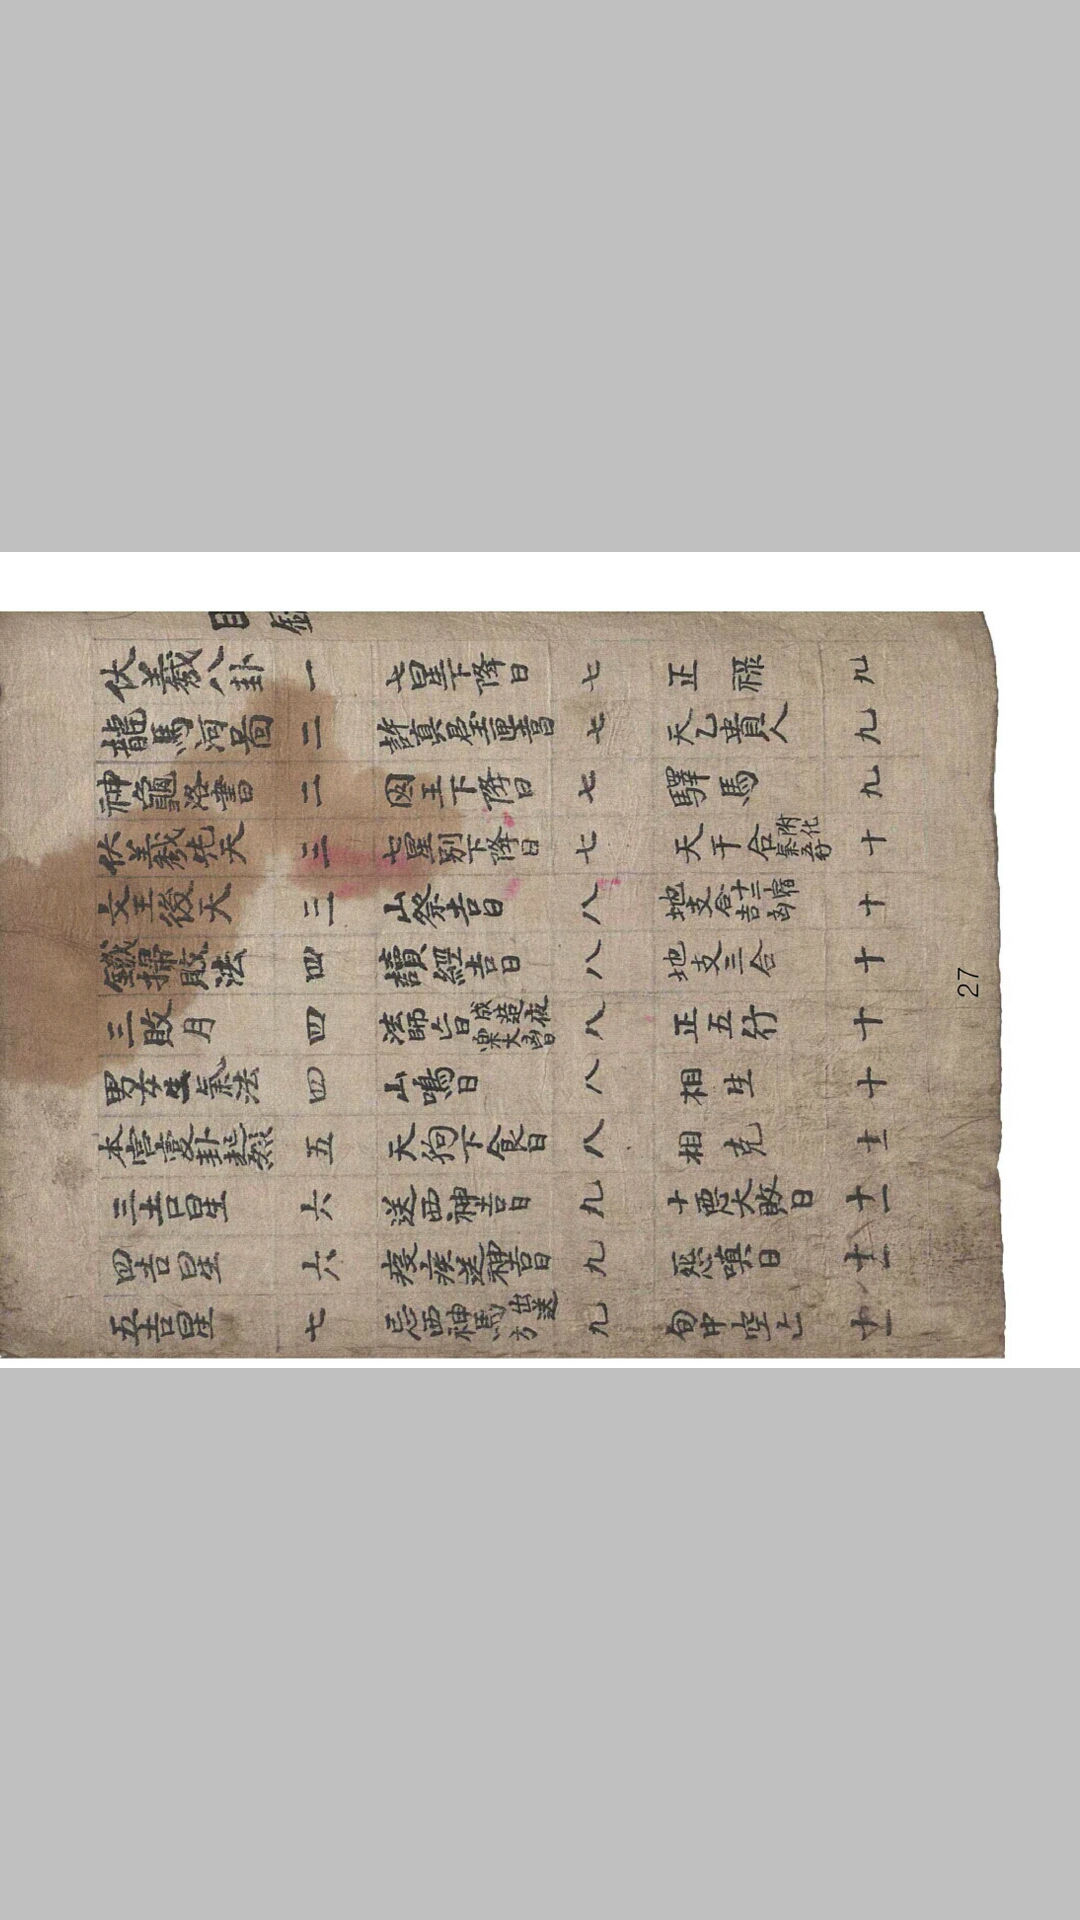 目錄
伏羲八卦 一 七星下降日 七 正祿 九
龍馬河圖 二 許真君玉匣書 七 天乙貴人 九
神龜洛書 二 囚王下降日 七 驛馬 九
伏羲先天 三 七星別下降日 七 天干合附化氣五行 十
文王後天 三 山祭吉日 八 地支合十二宿吉凶 十
鐵掃敗法 四 讀經吉日 八 地支三合 十
三敗月 四 法師亡日 八 正五行 十
男女生氣法 四 山鳴日 八 相生 十
本宮變卦 五 天狗下食日 八 相克 十一
三吉星 六 送西神吉日 九 十惡大敗日 十一
四吉星 六 疫疾送神吉日 九 慈嗔日 十一
五吉星 七 忌西神馬出送方 九 旬中空亡 十一
27